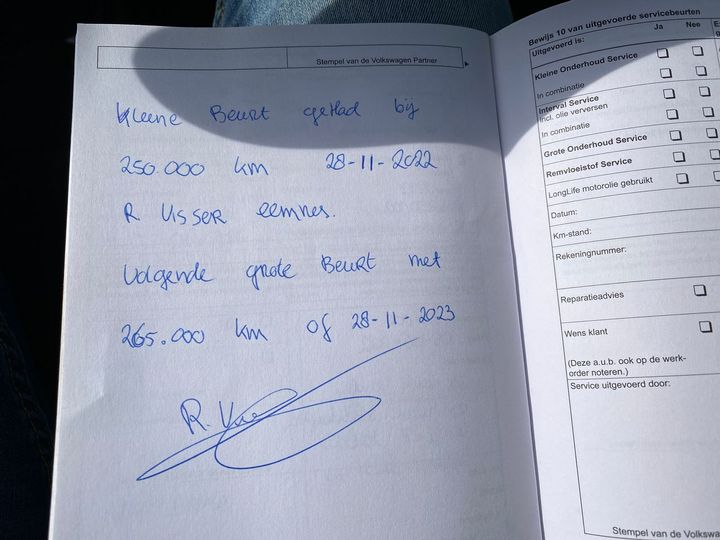 Stempel van de Volkswagen Partner
Kleine Beurt gehad bij
250.000 km 28-11-2022
R Visser eemnes.
Volgende grote Beurt met
265.000 km of 28-11-2023
Bewijs 10 van uitgevoerde servicebeurten
Uitgevoerd is: Ja Nee
Kleine Onderhoud Service
In combinatie
Interval Service
Incl. olie verversen
In combinatie
Grote Onderhoud Service
Remvloeistof Service
LongLife motorolie gebruikt
Datum:
Km-stand:
Rekeningnummer:
Reparatieadvies
Wens klant
(Deze a.u.b. ook op de werk-
order noteren.)
Service uitgevoerd door:
Stempel van de Volkswa